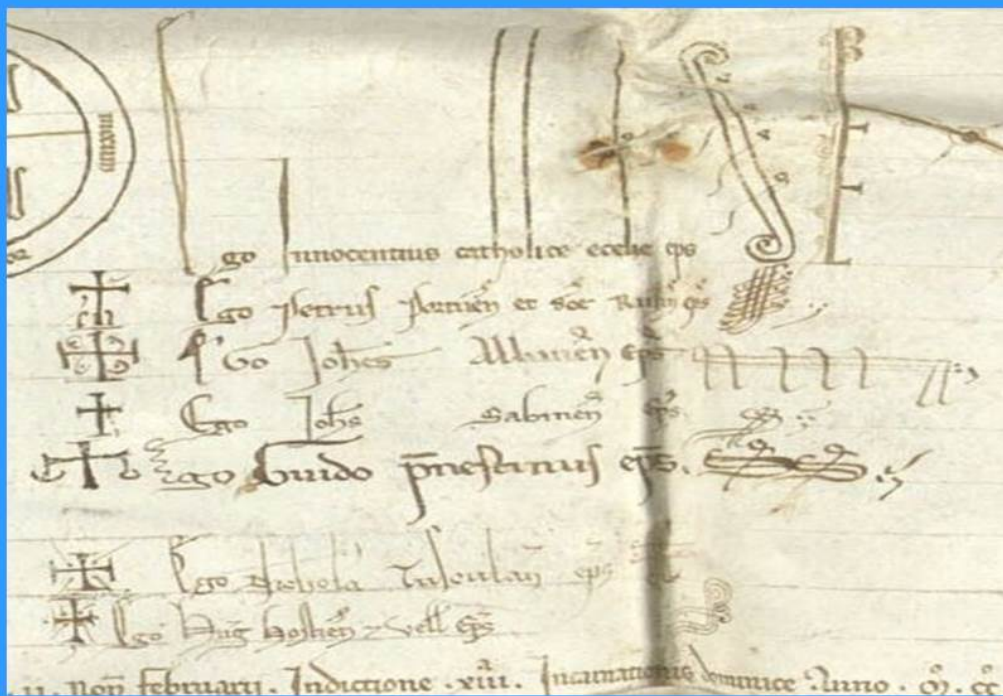 Ego Innocentius catholice ecclie eps
Ego Petrus Portuen et sce Rufin eps
Ego Johes Albanen eps
Ego Johs Sabinen eps
Ego Guido pnestinus eps.
Ego Nichola Tusculan eps
Ego Hug Hostien 7 Vell Eps
ii. Non februarii. Indictione .xiii. Incarnationis dominice Anno .